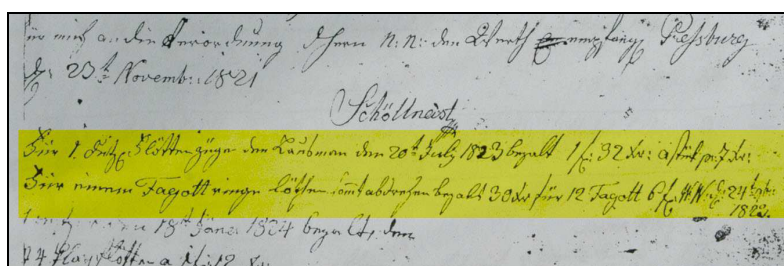 für mich an die Verordnung Hern n: n: den Werth empfang Pressburg
23t Novemb: 1821
Schöllnast
Für 1 Flöttenzüge den Lausman den 20t July 1823 bezalt 1 f: 32 xr: a stük pr: 7 xr:
Für einem Fagott ringe löthen samt abdrehen bezalt 30 xr für 12 Fagott 6 f: W W 24t
1823
den 18t Jäner 1824 bezalt, dem
24 Flötten a 1 f: 12 xr: